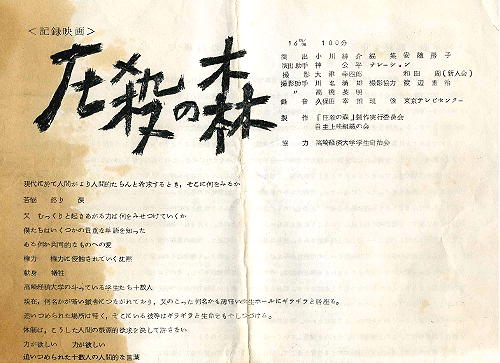 <記録映画>
圧殺の森
16m/m 100分
演出 小川紳介 編集 安随房子
演出助手 神公平 ナレーション
撮影 大津幸四郎 和田周(新人会)
撮影助手 川名満雄 撮影協力 渡辺重治
〃 高橋英明
録音 久保田幸雄 現像 東京テレビセンター
製作 『圧殺の森』製作実行委員会
自主上映組織の会
協力 高崎経済大学学生自治会
現代に於て人間がより人間的たらんと希求するとき、そこに何をみるか
苦悩 怒り 涙
又 むっくりと起きあがる力は何をみせつけていくか
僕たちはいくつかの貴重な単語を知った
ある何か共同的なものへの愛
権力 権力に侵蝕されていく友情
献身 犠牲
高崎経済大学の斗っている学生たち十数人
現在、何名かが暗い獄舎につながれており、又のこった何名かも薄暗い学生ホールにギラギラと居座る。
追いつめられた場所は暗く、そこにいる彼等はギラギラと生命をもやしつづける。
体制は、こうした人間の根源的欲求を決して許さない
力が欲しい 力が欲しい
追いつめられた十数人の人間的な言葉